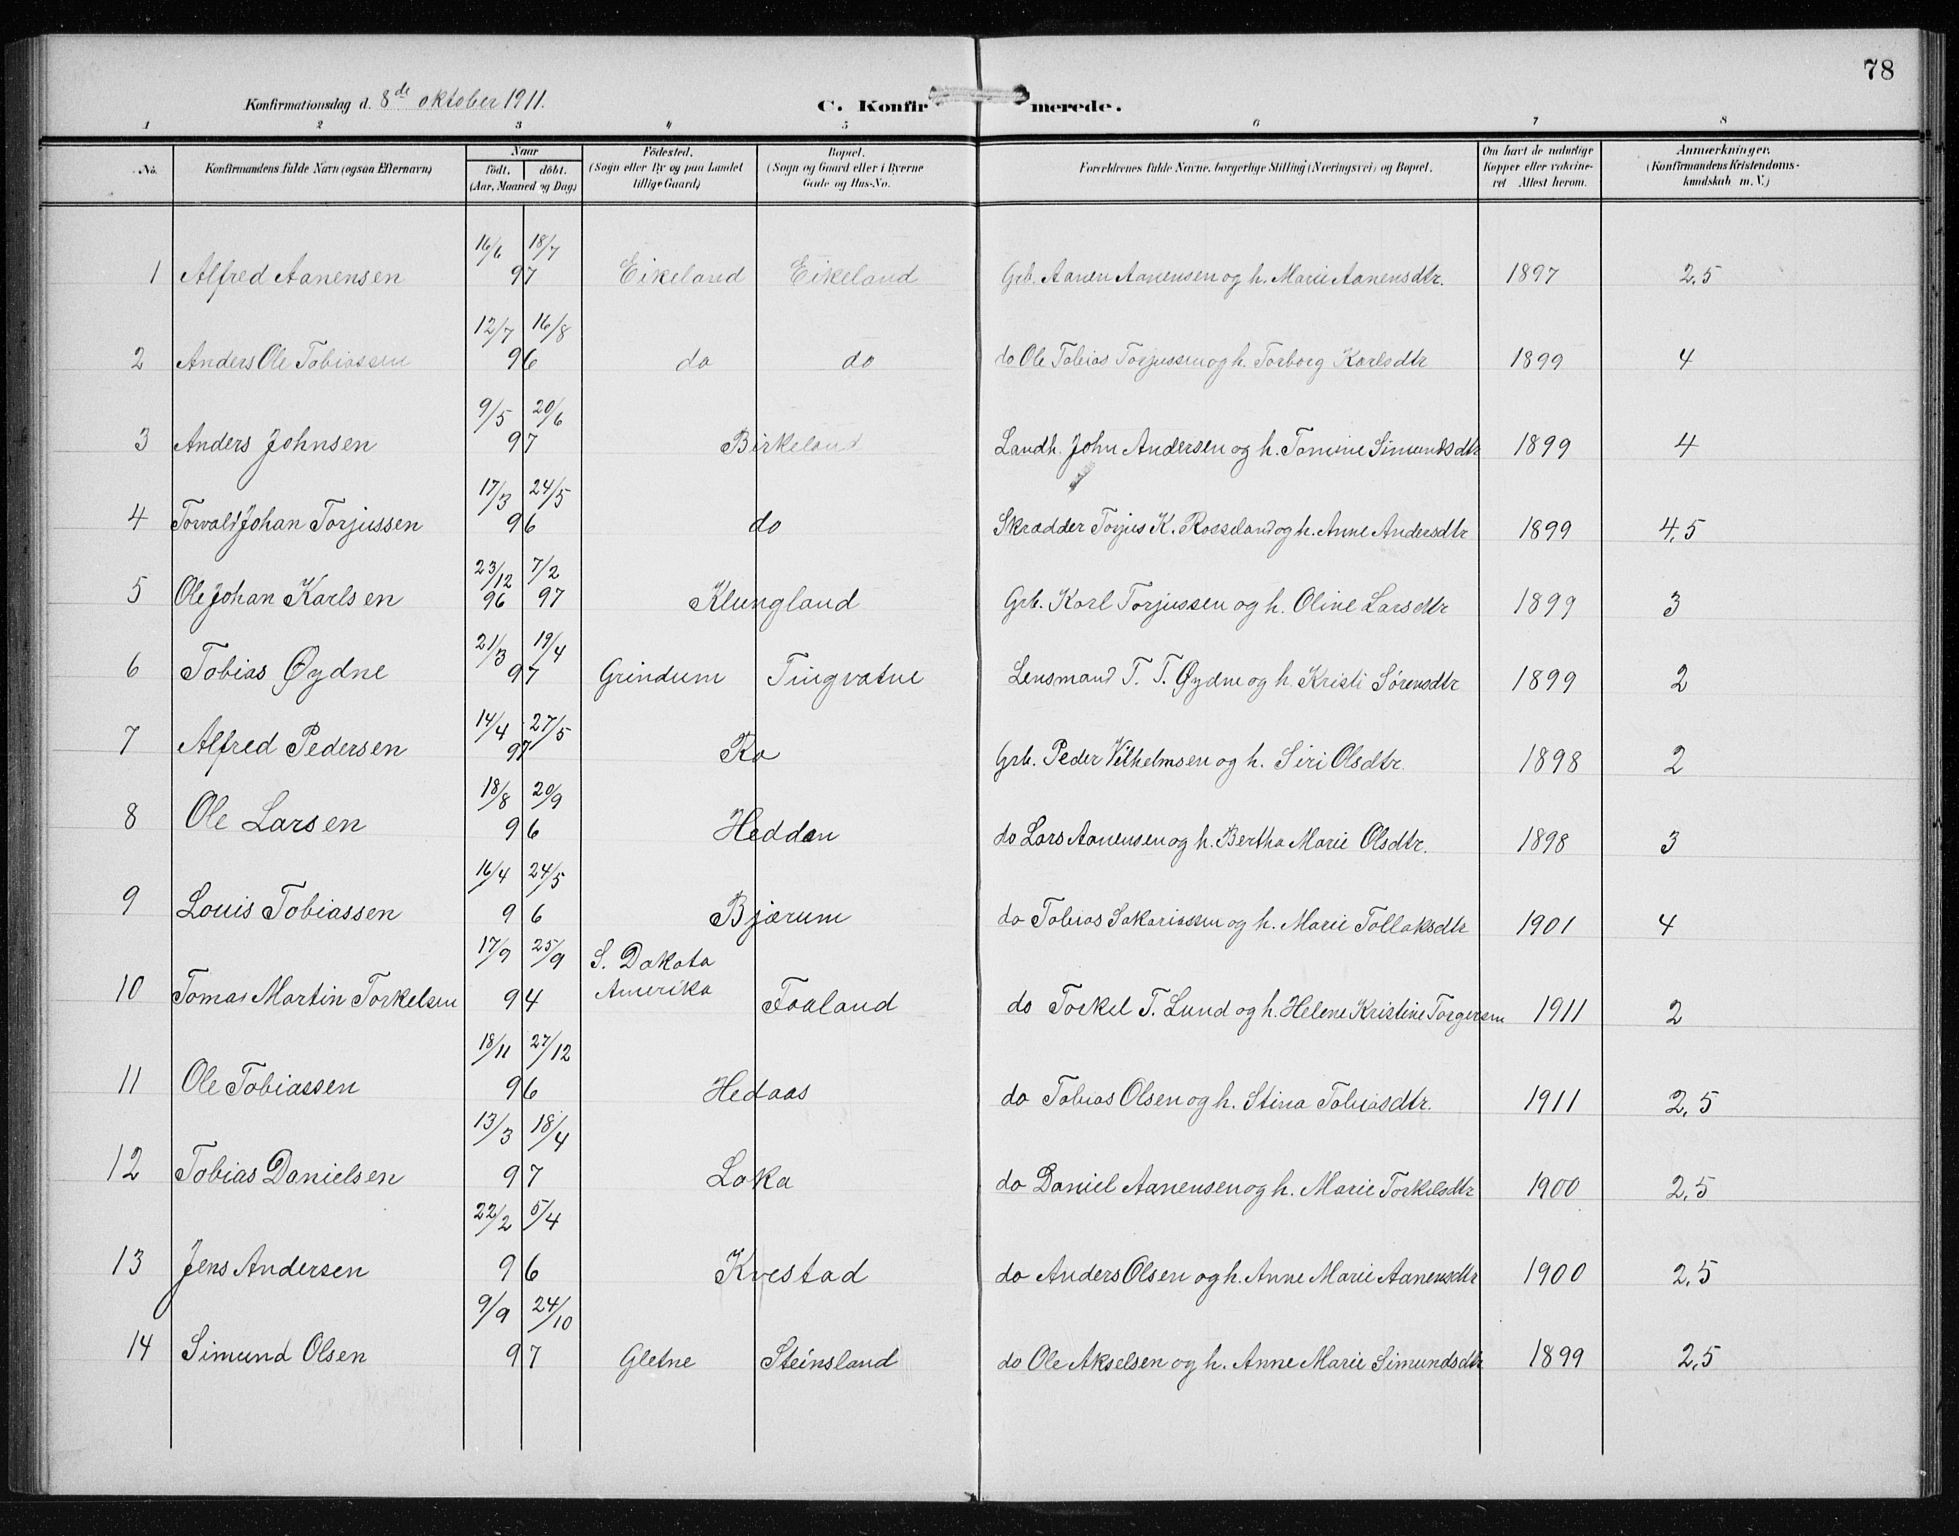 78
Konfirmationsdag d. 8de oktober 1911.
C. Konfirmerede.
1 2 3 4 5 6 7 8
No. Konfirmandens fulde Navn (ogsaa Efternavn) Naar født. døbt. (Aar, Maaned og Dag) Fødested. (Sogn eller By og paa Landet tillige Gaard) Bopæl. (Sogn og Gaard eller i Byerne Gade og Hus-No. Forældrenes fulde Navne, borgerlige Stilling (Næringsvei) og Bopæl. Om havt de naturlige Kopper eller vakcineret Attest herom. Anmærkninger. (Konfirmandens Kristendomskundskab m. V.)
16/6 18/7
1 Alfred Aanensen 97 Eikeland Eikeland Grb. Aanen Aanensen og h. Marie Aanensdtr. 1897 2,5
12/7 16/8
2 Anders Ole Tobiassen 96 do do do Ole Tobias Torjussen og h. Torborg Karlsdtr 1899 4
9/5 20/6
3 Anders Johnsen 97 Birkeland Landh. John Andersen og h. Tomine Simundsdtr 1899 4
17/3 24/5
4 Torvald Johan Torjussen 96 do Skrædder Torjus K. Rosseland og h. Anne Andersdtr 1899 4,5
23/12 7/2
5 Ole Johan Karlsen 96 97 Klungland Grb. Karl Torjussen og h. Oline Larsdtr 1899 3
21/3 19/4
6 Tobias Øydne 97 Grindum Tingvatne Lensmand T. T. Øydne og h. Kristi Sørensdtr 1899 2
14/4 27/5
7 Alfred Pedersen 97 Ro Grb. Peder Vilhelmsen og h. Siri Olsdtr. 1898 2
18/8 20/9
8 Ole Larsen 96 Heddan do Lars Aanensen og h. Bertha Marie Olsdtr. 1898 3
16/4 24/5
9 Louis Tobiassen 96 Bjærum do Tobias Sakariassen og h. Marie Tollaksdtr 1901 4
17/9 25/9 S. Dakota
10 Tomas Martin Torkelsen 94 Amerika Faaland do Torkel T. Lund og h. Helene Kristine Torgersen 1911 2
18/11 27/12
11 Ole Tobiassen 96 Hedaas do Tobias Olsen og h. Stina Tobiasdtr. 1911 2,5
13/3 18/4
12 Tobias Danielsen 97 Loka do Daniel Aanensen og h. Marie Torkelsdtr 1900 2,5
22/2 5/4
13 Jens Andersen 96 Kvestad do Anders Olsen og h. Anne Marie Aanensdtr 1900 2,5
9/9 24/10
14 Simund Olsen 97 Gletne Steinsland do Ole Akselsen og h. Anne Marie Simundsdtr 1899 2,5